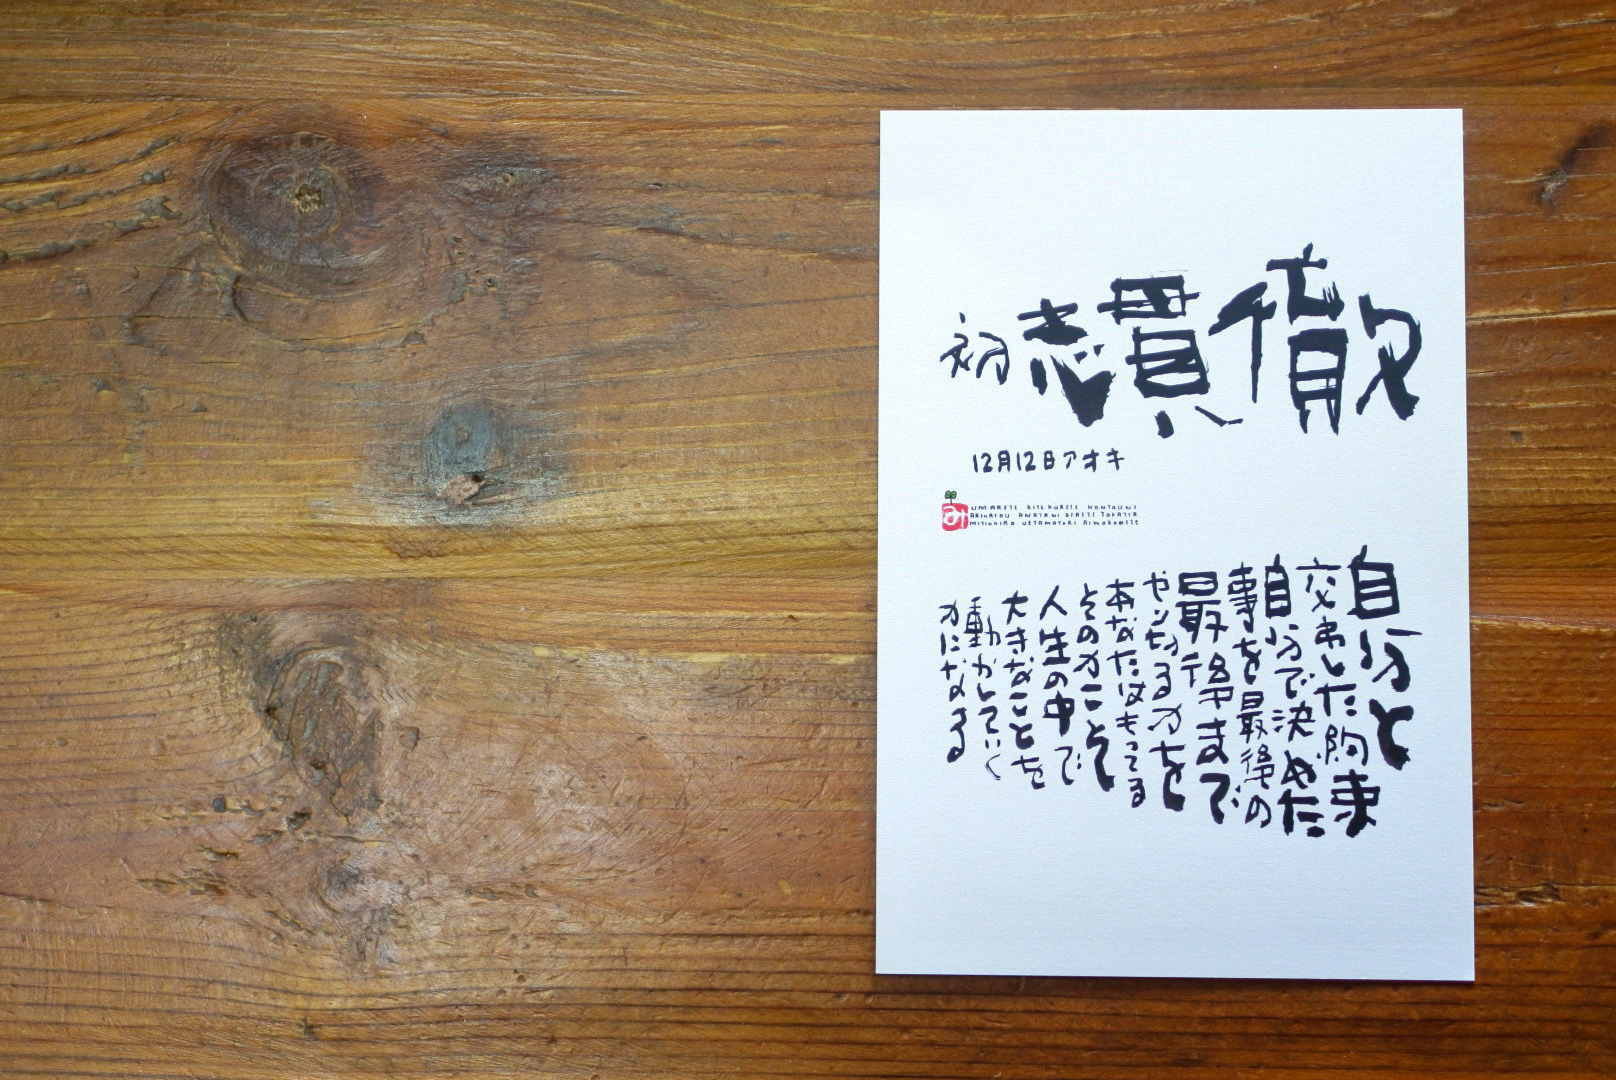 初志貫徹
12月12日アオキ
み
UMARETE KITEKURETE HONTOUNI
ARIGATOU ANATANI DEAETE YOKATTA
MITIHIRO UETAMOTORI AIWOKOMETE
自分と
交わした約束
自分で決めた
事を最後の
最後まで
やり切る力を
あなたはもってる
その力こそ
人生の中で
大きなことを
動かしていく
力になる